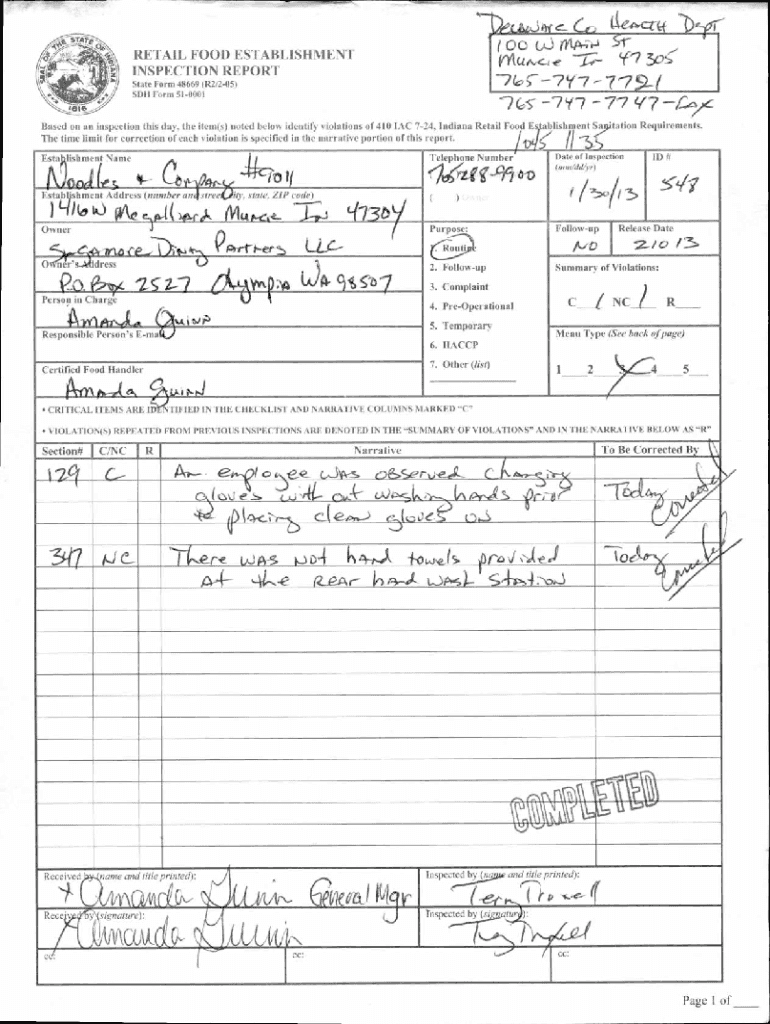 Delaware Co Health Dept
100 W Main St
Muncie In 47305
765-747-7721
765-747-7747-Fax
RETAIL FOOD ESTABLISHMENT
INSPECTION REPORT
State Form 48669 (R2/2-05)
SDH Form 51-0001
Based on an inspection this day, the item(s) noted below identify violations of 410 IAC 7-24, Indiana Retail Food Establishment Sanitation Requirements.
The time limit for correction of each violation is specified in the narrative portion of this report.
1045 1135
Establishment Name
Noodles + Company #9011
Telephone Number
765 288-9900
Date of Inspection
(mm/dd/yr)
1/30/13
ID #
548
Establishment Address (number and street, city, state, ZIP code)
1416 W McGalliard Muncie In 47304
Owner
Sycamore Dining Partners LLC
Owner's Address
P.O. Box 2527 Olympia WA 98507
Person in Charge
Amanda Quinn
Responsible Person's E-mail
Certified Food Handler
Amanda Quinn
Purpose:
1. Routine
2. Follow-up
3. Complaint
4. Pre-Operational
5. Temporary
6. HACCP
7. Other (list)
Follow-up
NO
Release Date
2 10 13
Summary of Violations:
C 1 NC 1 R
Menu Type (See back of page)
1 2 3 4 5
• CRITICAL ITEMS ARE IDENTIFIED IN THE CHECKLIST AND NARRATIVE COLUMNS MARKED "C"
• VIOLATION(S) REPEATED FROM PREVIOUS INSPECTIONS ARE DENOTED IN THE "SUMMARY OF VIOLATIONS" AND IN THE NARRATIVE BELOW AS "R"
Section# C/NC R Narrative To Be Corrected By
129 C An employee was observed changing
gloves with out washing hands prior Today Corrected
to placing clean gloves on
347 NC There was not hand towels provided Today Corrected
at the rear hand wash station
COMPLETED
Received by (name and title printed):
x Amanda Quinn General Mgr
Inspected by (name and title printed):
Terry Troxell
Received by (signature):
Amanda Quinn
Inspected by (signature):
Terry Troxell
cc: cc: cc:
Page 1 of